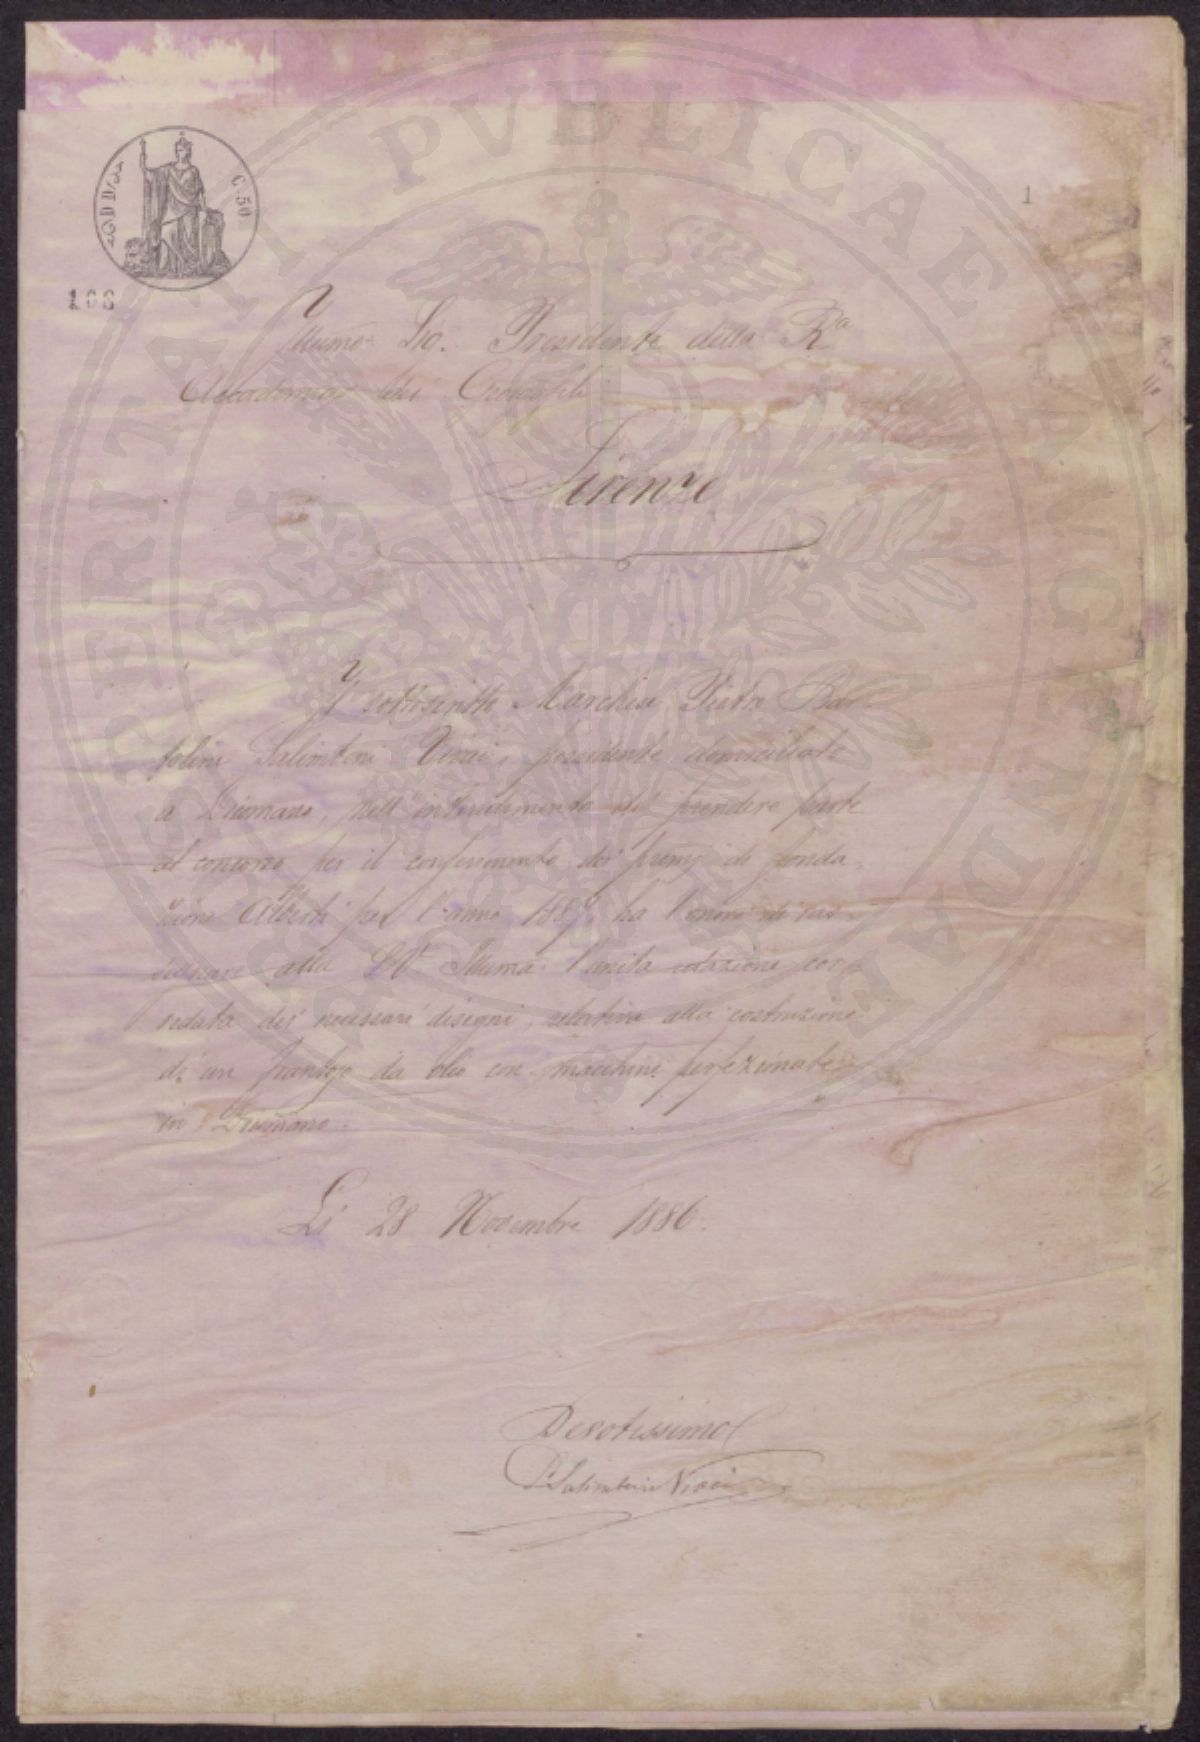 PROSPERITATI PVBLICAE AVGENDAE
C. 50
1
Illumo Sig. Presidente della Ra
Accademia dei Georgofili
Firenze
Il sottoscritto Marchese Pietro Bar-
tolini Salimbeni Vivai, possidente domiciliato
a Dicomano, nell' intendimento di prendere parte
al concorso per il conferimento dei premj di fonda-
zione Alberti per l'anno 1887, ha l'onore di ras-
segnare alla S.V. Illuma l'unita relazione cor-
redata dei necessari disegni, relativa alla costruzione
di un frantojo da olio con macchine perfezionate
in Dicomano.
Li 28 Novembre 1886.
Devotissimo
P. Salimbeni Vivai